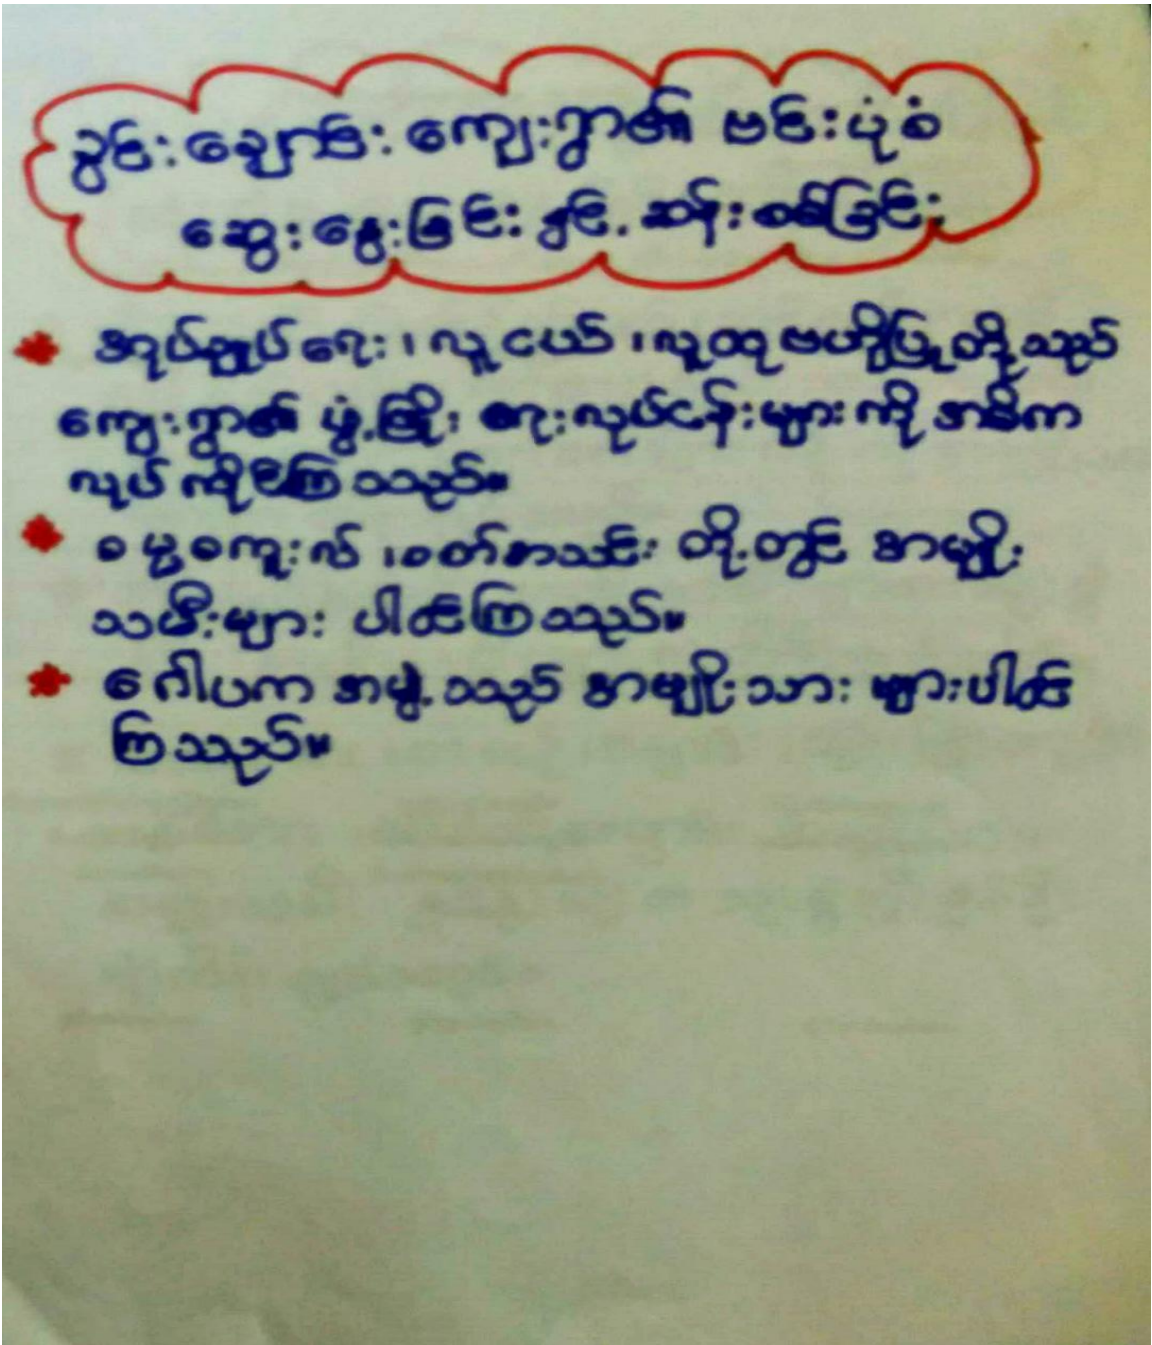 ခွင်းချောင်း ကျေးရွာ၏ ဗင်းပုံစံ
ဆွေးနွေးခြင်း နှင့် ဆန်းစစ်ခြင်း
အုပ်ချုပ်ရေး ၊ လူငယ် ၊ လူထုဗဟိုပြုတို့သည်
ကျေးရွာ၏ ဖွံ့ဖြိုး ရေးလုပ်ငန်းများကို အဓိက
လုပ်ကိုင်ကြသည်။
ဓမ္မစကူးလ် ၊ ဝတ်အသင်း တို့တွင် အမျိုး
သမီးများ ပါဝင်ကြသည်။
ဂေါပက အဖွဲ့သည် အမျိုးသား များပါဝင်
ကြသည်။